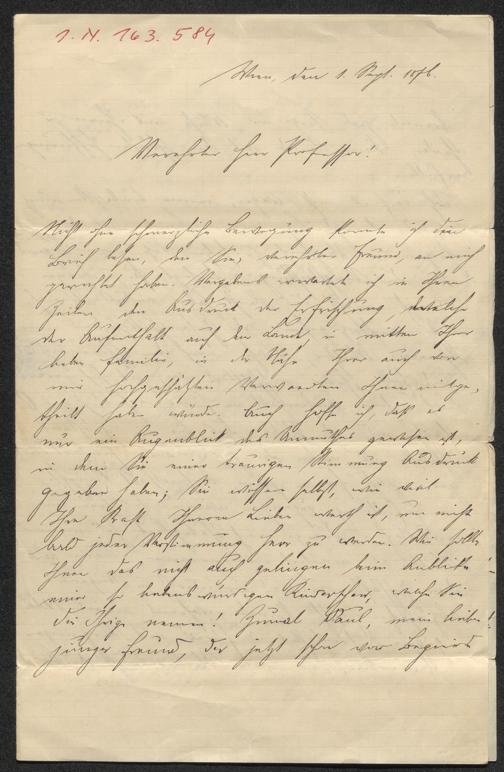 I. N. 163.584
Wien, den 1. Sept. 1876.
Verehrter Herr Professor!
Nicht ohne schmerzliche Bewegung konnte ich den
Brief lesen, den Sie, verehrter Freund, an mich
gerichtet haben. Vergebens erwartete ich in Ihren
Zeilen den Ausdruck der Erfrischung, welche
der Aufenthalt auf dem Lande, in mitten Ihrer
lieben Familie, in der Nähe Ihrer auch von
mir hochgeschätzten Verwandten Ihnen mitge-
theilt haben würde. Auch hoffe ich daß es
nur ein Augenblick des Unmuthes gewesen ist,
in dem Sie einer traurigen Stimmung Ausdruck
gegeben haben; Sie wissen selbst, wie viel
Ihre Kraft Ihren Lieben werth ist, um nicht
bald jeder Verstimmung Herr zu werden. Wie sollte
Ihnen das nicht auch gelingen beim Anblicke
einer so liebenswürdigen Kinderschar, welche Sie
die Ihrige nennen! Zumal Paul, mein lieber
junger Freund, der jetzt schon vor Begierde